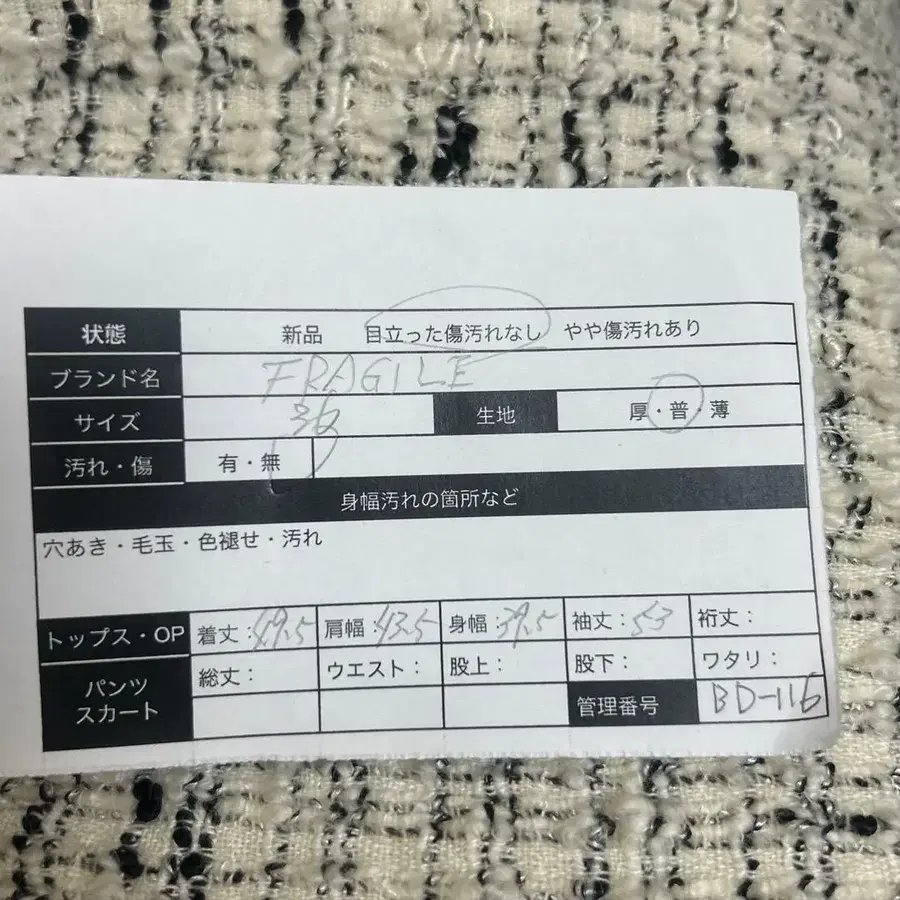 状態 新品 目立った傷汚れなし やや傷汚れあり
ブランド名 FRAGILE
サイズ 36 生地 厚・普・薄
汚れ・傷 有・無
身幅汚れの箇所など
穴あき・毛玉・色褪せ・汚れ
トップス・OP 着丈：49.5 肩幅：43.5 身幅：39.5 袖丈：53 裄丈：
パンツ 総丈： ウエスト： 股上： 股下： ワタリ：
スカート 管理番号 BD-116